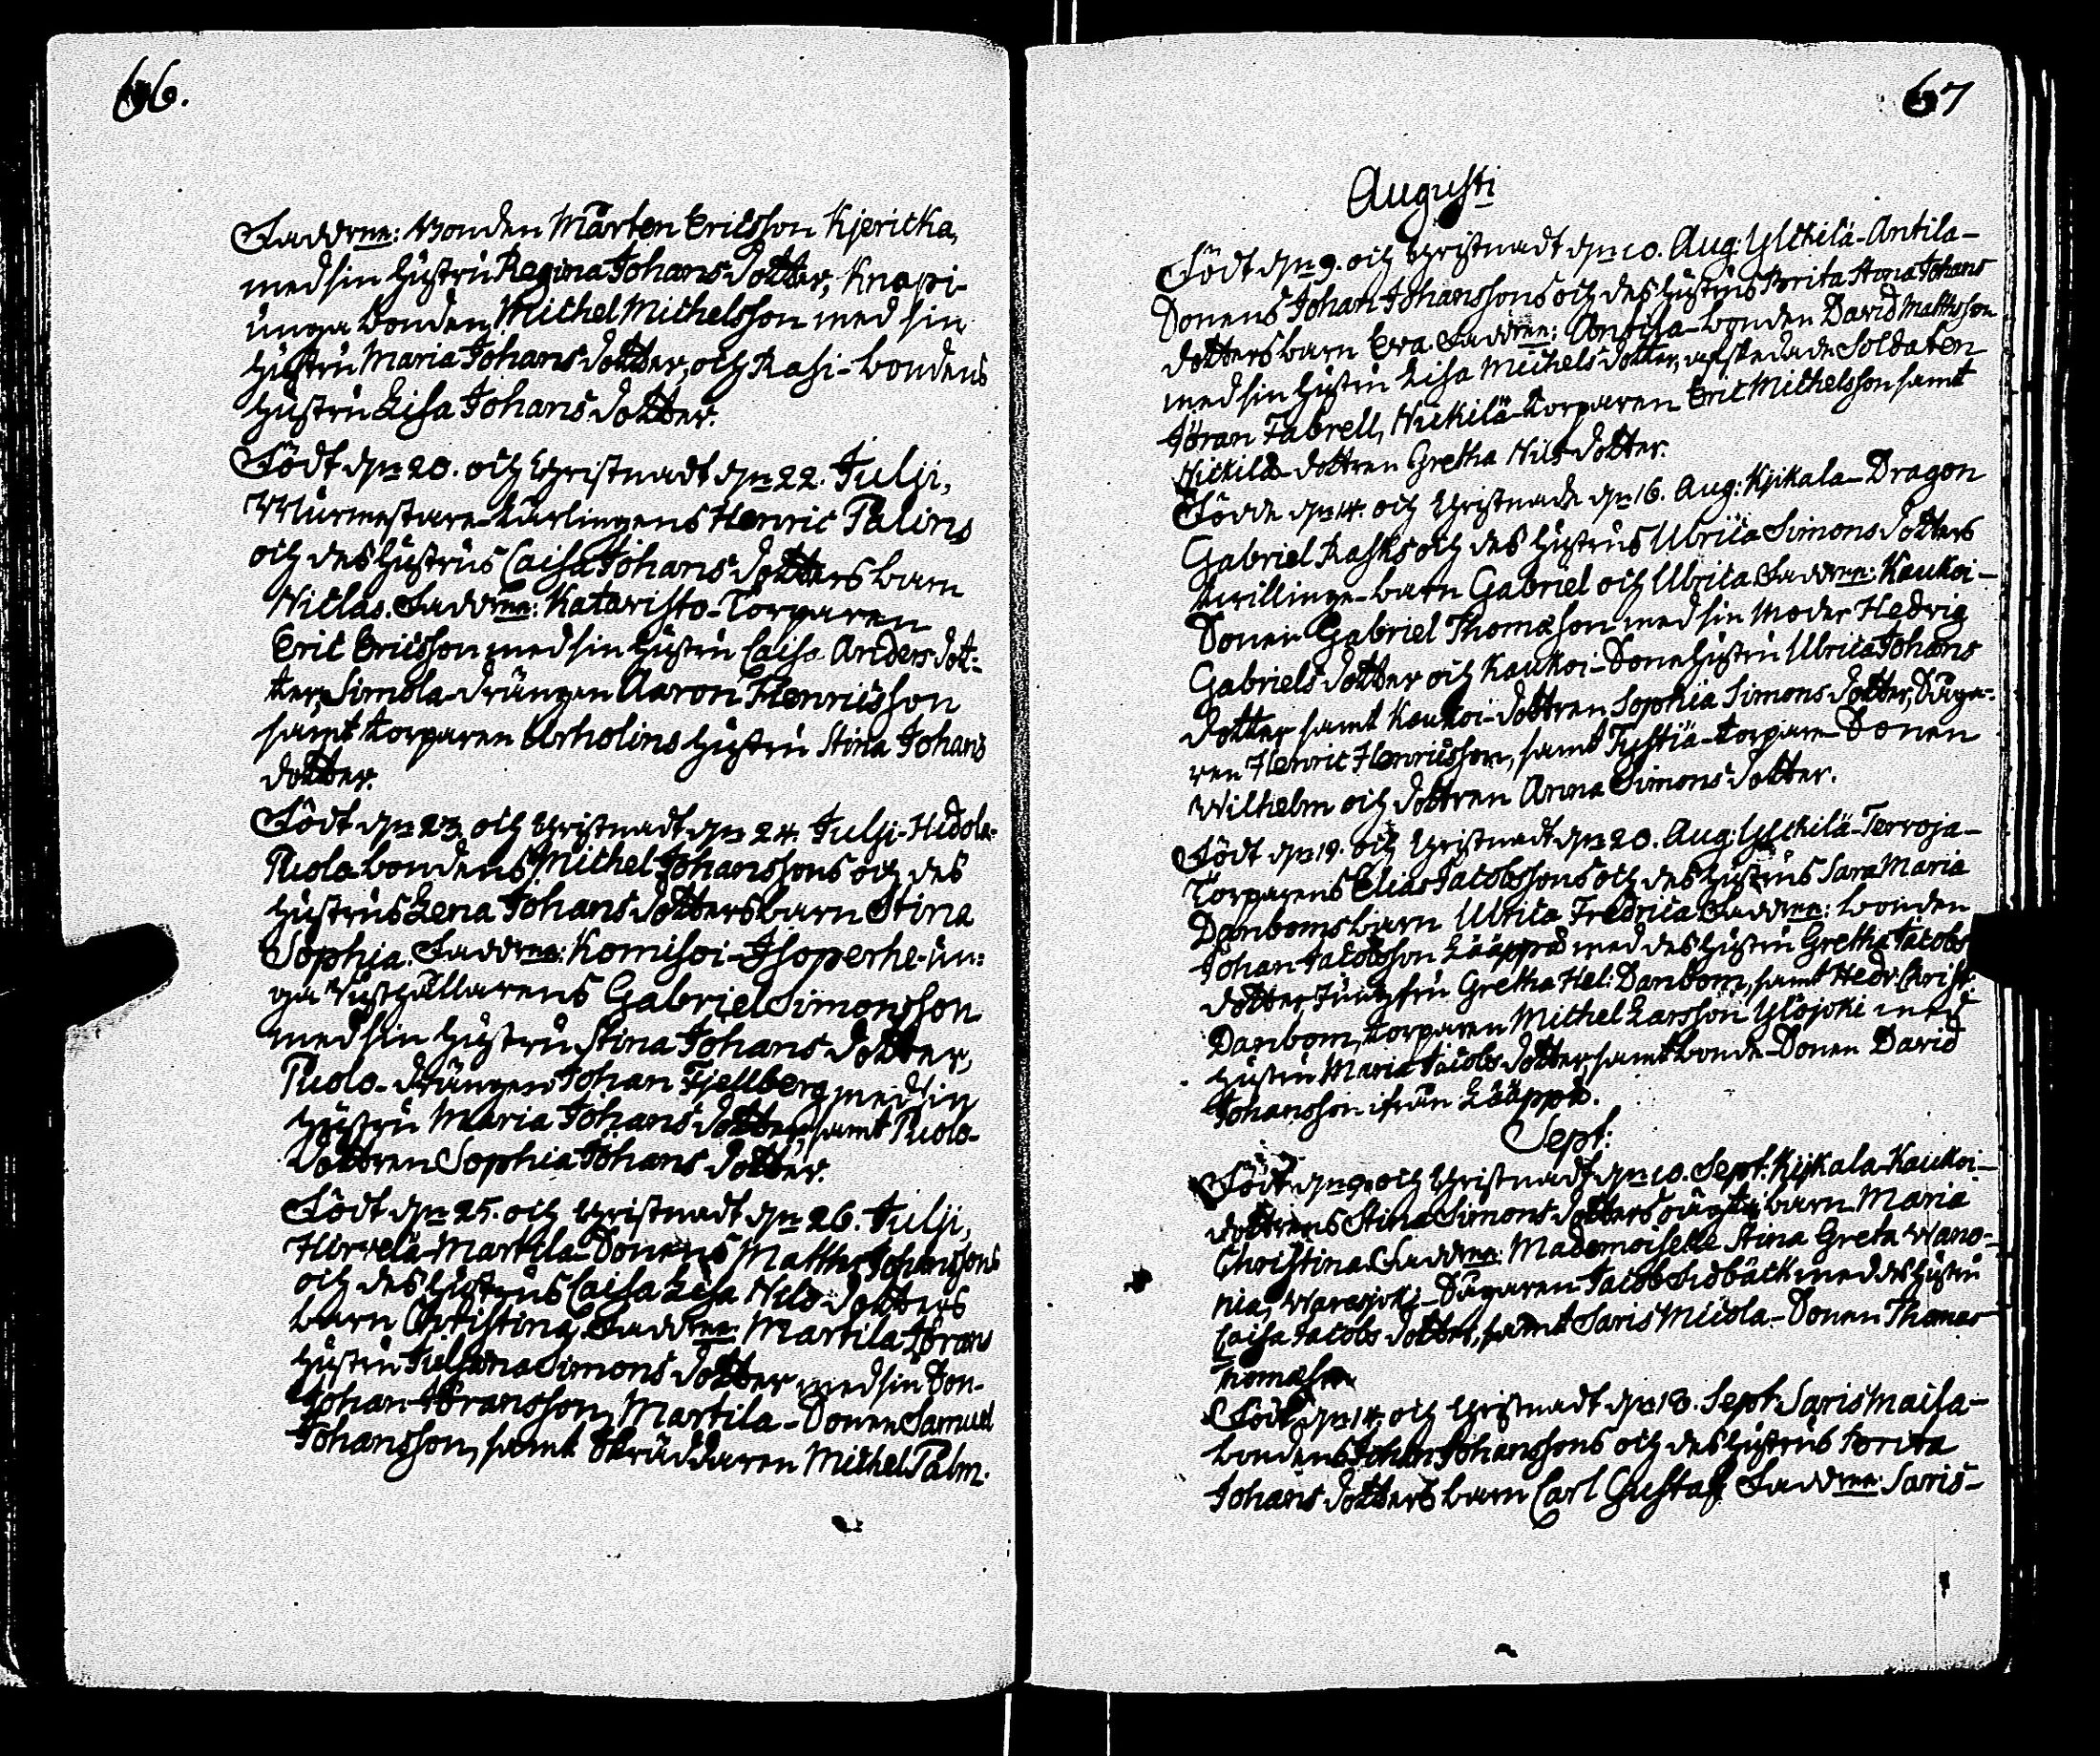 66.
Faddrne: Bonden Mårten Ericsson Kjericka,
med sin hustru Regina Johans dotter, Knapi-
unga bonden Michel Michelsson med sin
hustru Maria Johans dotter, och Rasi-bondens
hustru Lisa Johans dotter.
Födt dn 20. och Christnadt dn 22. Julji,
Murmestare-Lärlingens Henric Palins
och des hustrus Caisa Johans dotters barn
Niclas. Faddrne: Kataristo-Torparen
Eric Ericsson med sin hustru Caisa Anders dot-
ter, Simola-drängen Aaron Henricsson
samt torparen Urholins hustru Stina Johans
dotter.
Födt dn 23. och Christnadt dn 24. Julji-Hidola-
Puola bondens Michel Johanssons och des
hustrus Lena Johans dotters barn Stina
Sophia. Faddrne: Komisoi-Isoperhe-un-
ga Rusthållarens Gabriel Simonsson
med sin hustru Stina Johans dotter,
Puolo-drängen Johan Fjellberg med sin
hustru Maria Johans dotter, samt Puolo-
dottren Sophia Johans dotter.
Födt dn 25. och Christnadt dn 26. Julji,
Hirvelä-Martila-Sonens Matths Johanssons
och des hustrus Caisa Lisa Nils dotters
barn Christina. Faddrne: Martila Jörans
hustru Juliana Simons dotter med sin Son-
Johan Jöransson, Martila-Sonen Samuel
Johansson, samt Skräddaren Michel Palm.
67
Augusti
Födt dn 9. och Christnadt dn 10. Aug: Ylikilä-Antila-
Sonens Johan Johanssons och des hustrus Brita Stina Johans
dotters barn Eva. Faddrne: Antila-bonden David Mathsson
med sin hustru Lisa Michels dotter, afskedade Soldaten
Jöran Fabrell, Nickilä-torparen Eric Michelsson samt
Nickilä-dottren Gretha Nils dotter.
Födde dn 14. och Christnade dn 16. Aug: Kjikala-Dragon
Gabriel Rasks och des hustrus Ulrica Simons dotters
twillinge-barn Gabriel och Ulrica. Faddrne: Kaukoi-
Sonen Gabriel Thomason med sin Moder Hedvig
Gabriels dotter och Kaukoi-Sone hustru Ulrica Johans
dotter samt Kaukoi-dottren Sophia Simons dotter, Såga-
ren Henric Henricsson, samt Tystiä-torpare-Sonen
Wilhelm och dottren Anna Simons dotter.
Födt dn 19. och Christnadt dn 20. Aug: Ylikilä-Terroja-
Torparens Elias Jacobssons och des hustrus Sara Maria
Danboms barn Ulrica Fredrica. Faddrne: bonden
Johan Jacobsson Lääppä med des hustru Gretha Jacobs
dotter, Jungfru Gretha Hel: Danbom, samt Hedv: Christ:
Danbom, torparen Michel Larsson Ylöjoki med
hustru Maria Jacobs dotter, samt bonde-Sonen David
Johansson ifrån Lääppä.
Sept:
Födt dn 9. och Christnadt dn 10. Sept: Kijkala-Kaukoi-
dottrens Stina Simons dotters oägta barn Maria
Christina. Faddrne: Mademoiselle Stina Greta Wano-
nia, Waresjoki-Sågaren Jacob Sidbäck med des hustru
Caisa Jacobs dotter, samt Saris Muola-Sonen Thomas
Thomason.
Födt dn 14. och Christnadt dn 18. Sept: Saris Maisa-
bondens Johan Johanssons och des hustrus Brita
Johans dotters barn Carl Gustaf. Faddrne: Saris-